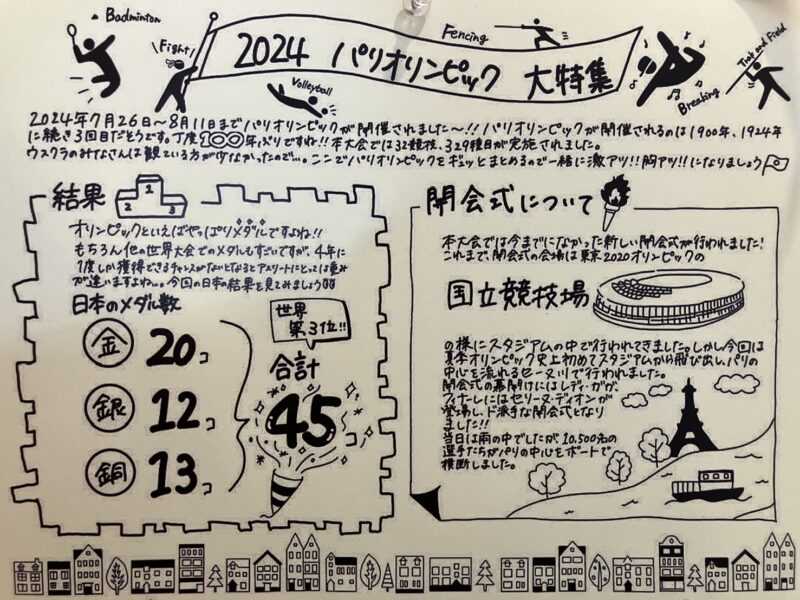 Badminton
Fight!
2024 パリオリンピック 大特集
Fencing
Volleyball
Breaking
Track and Field
2024年7月26日〜8月11日までパリオリンピックが開催されました〜!!パリオリンピックが開催されるのは1900年、1924年
に続き3回目だそうです。丁度100年ぶりですね!!本大会では32競技、329種目が実施されました。
ウスクラのみなさんは観ている方が少なかったので…。ここでパリオリンピックをギュッとまとめるので一緒に激アツ!!胸アツ!!になりましょう
結果
1 2 3
オリンピックといえばやっぱりメダルですよね!!
もちろん他の世界大会でのメダルもすごいですが、4年に
1度しか獲得できるチャンスがないとなるとアスリートにとっては重み
が違いますよね…。今回の日本の結果を見てみましょう
日本のメダル数
金 20コ
銀 12コ
銅 13コ
世界
第3位!!
合計
45コ
開会式について
本大会では今までになかった新しい開会式が行われました!
これまで、開会式の会場は東京2020オリンピックの
国立競技場
の様にスタジアムの中で行われてきました。しかし、今回は
夏季オリンピック史上初めてスタジアムから飛び出し、パリの
中心を流れるセーヌ川で行われました。
開会式の幕開けにはレディ・ガガ、
フィナーレにはセリーヌ・ディオンが
登場し、ド派手な開会式となり
ました!!
当日は雨の中でしたが10,500名の
選手たちがパリの中心をボートで
横断しました。